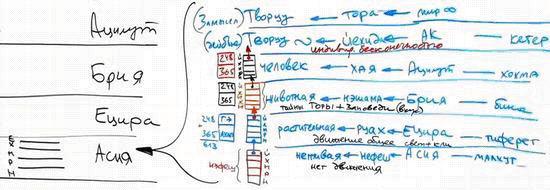 Ацилут
Брия
Ецира
Асия
(Замысел) Творцу ← Тора ← мир ∞
(подобие) Творцу ← Йехида ← АК — кетер
человек ← хая ← Ацилут — хохма
животная ← нэшама ← Брия — бина
тайны Торы + Заповеди
растительная ← руах ← Ецира — тиферет
движение общее свет+кли
неживая ← нефеш ← Асия — малкут
нет движения
248
365
248
365
248
365
613
нефеш